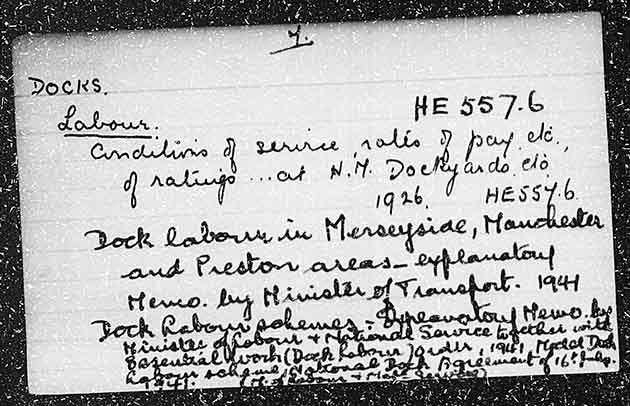 7.
DOCKS.
HE 557.6
Labour.
Conditions of service, rates of pay, etc.,
of ratings ... at H.M. Dockyards, etc.
1926. HE557.6
Dock labour in Merseyside, Manchester
and Preston areas - explanatory
Memo. by Minister of Transport. 1941
Dock Labour schemes: Explanatory Memo. by
Minister of Labour & National Service together with
Essential Work (Dock Labour) Order, 1941, Model Dock
Labour scheme, National Dock Agreement of 16th July.
(M. of Labour & Natl. Service)